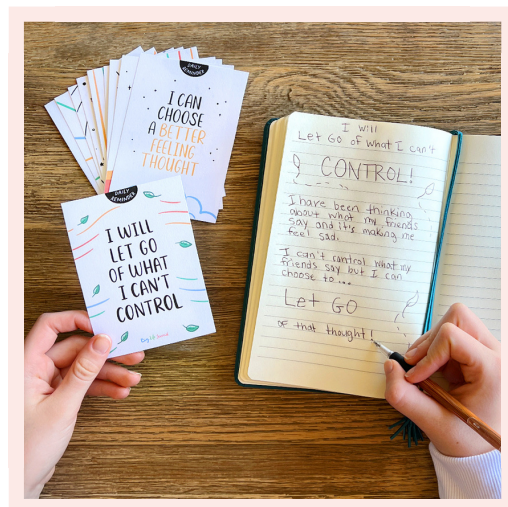 DAILY
REMINDER
I CAN
CHOOSE
A BETTER
FEELING
THOUGHT
DAILY
REMINDER
I WILL
LET GO
OF WHAT
I CAN'T
CONTROL
I will
Let Go of what I can't
CONTROL!
I have been thinking
about what my friends
say and it's making me
feel sad.
I can't control what my
friends say but I can
choose to...
Let GO
of that thought!